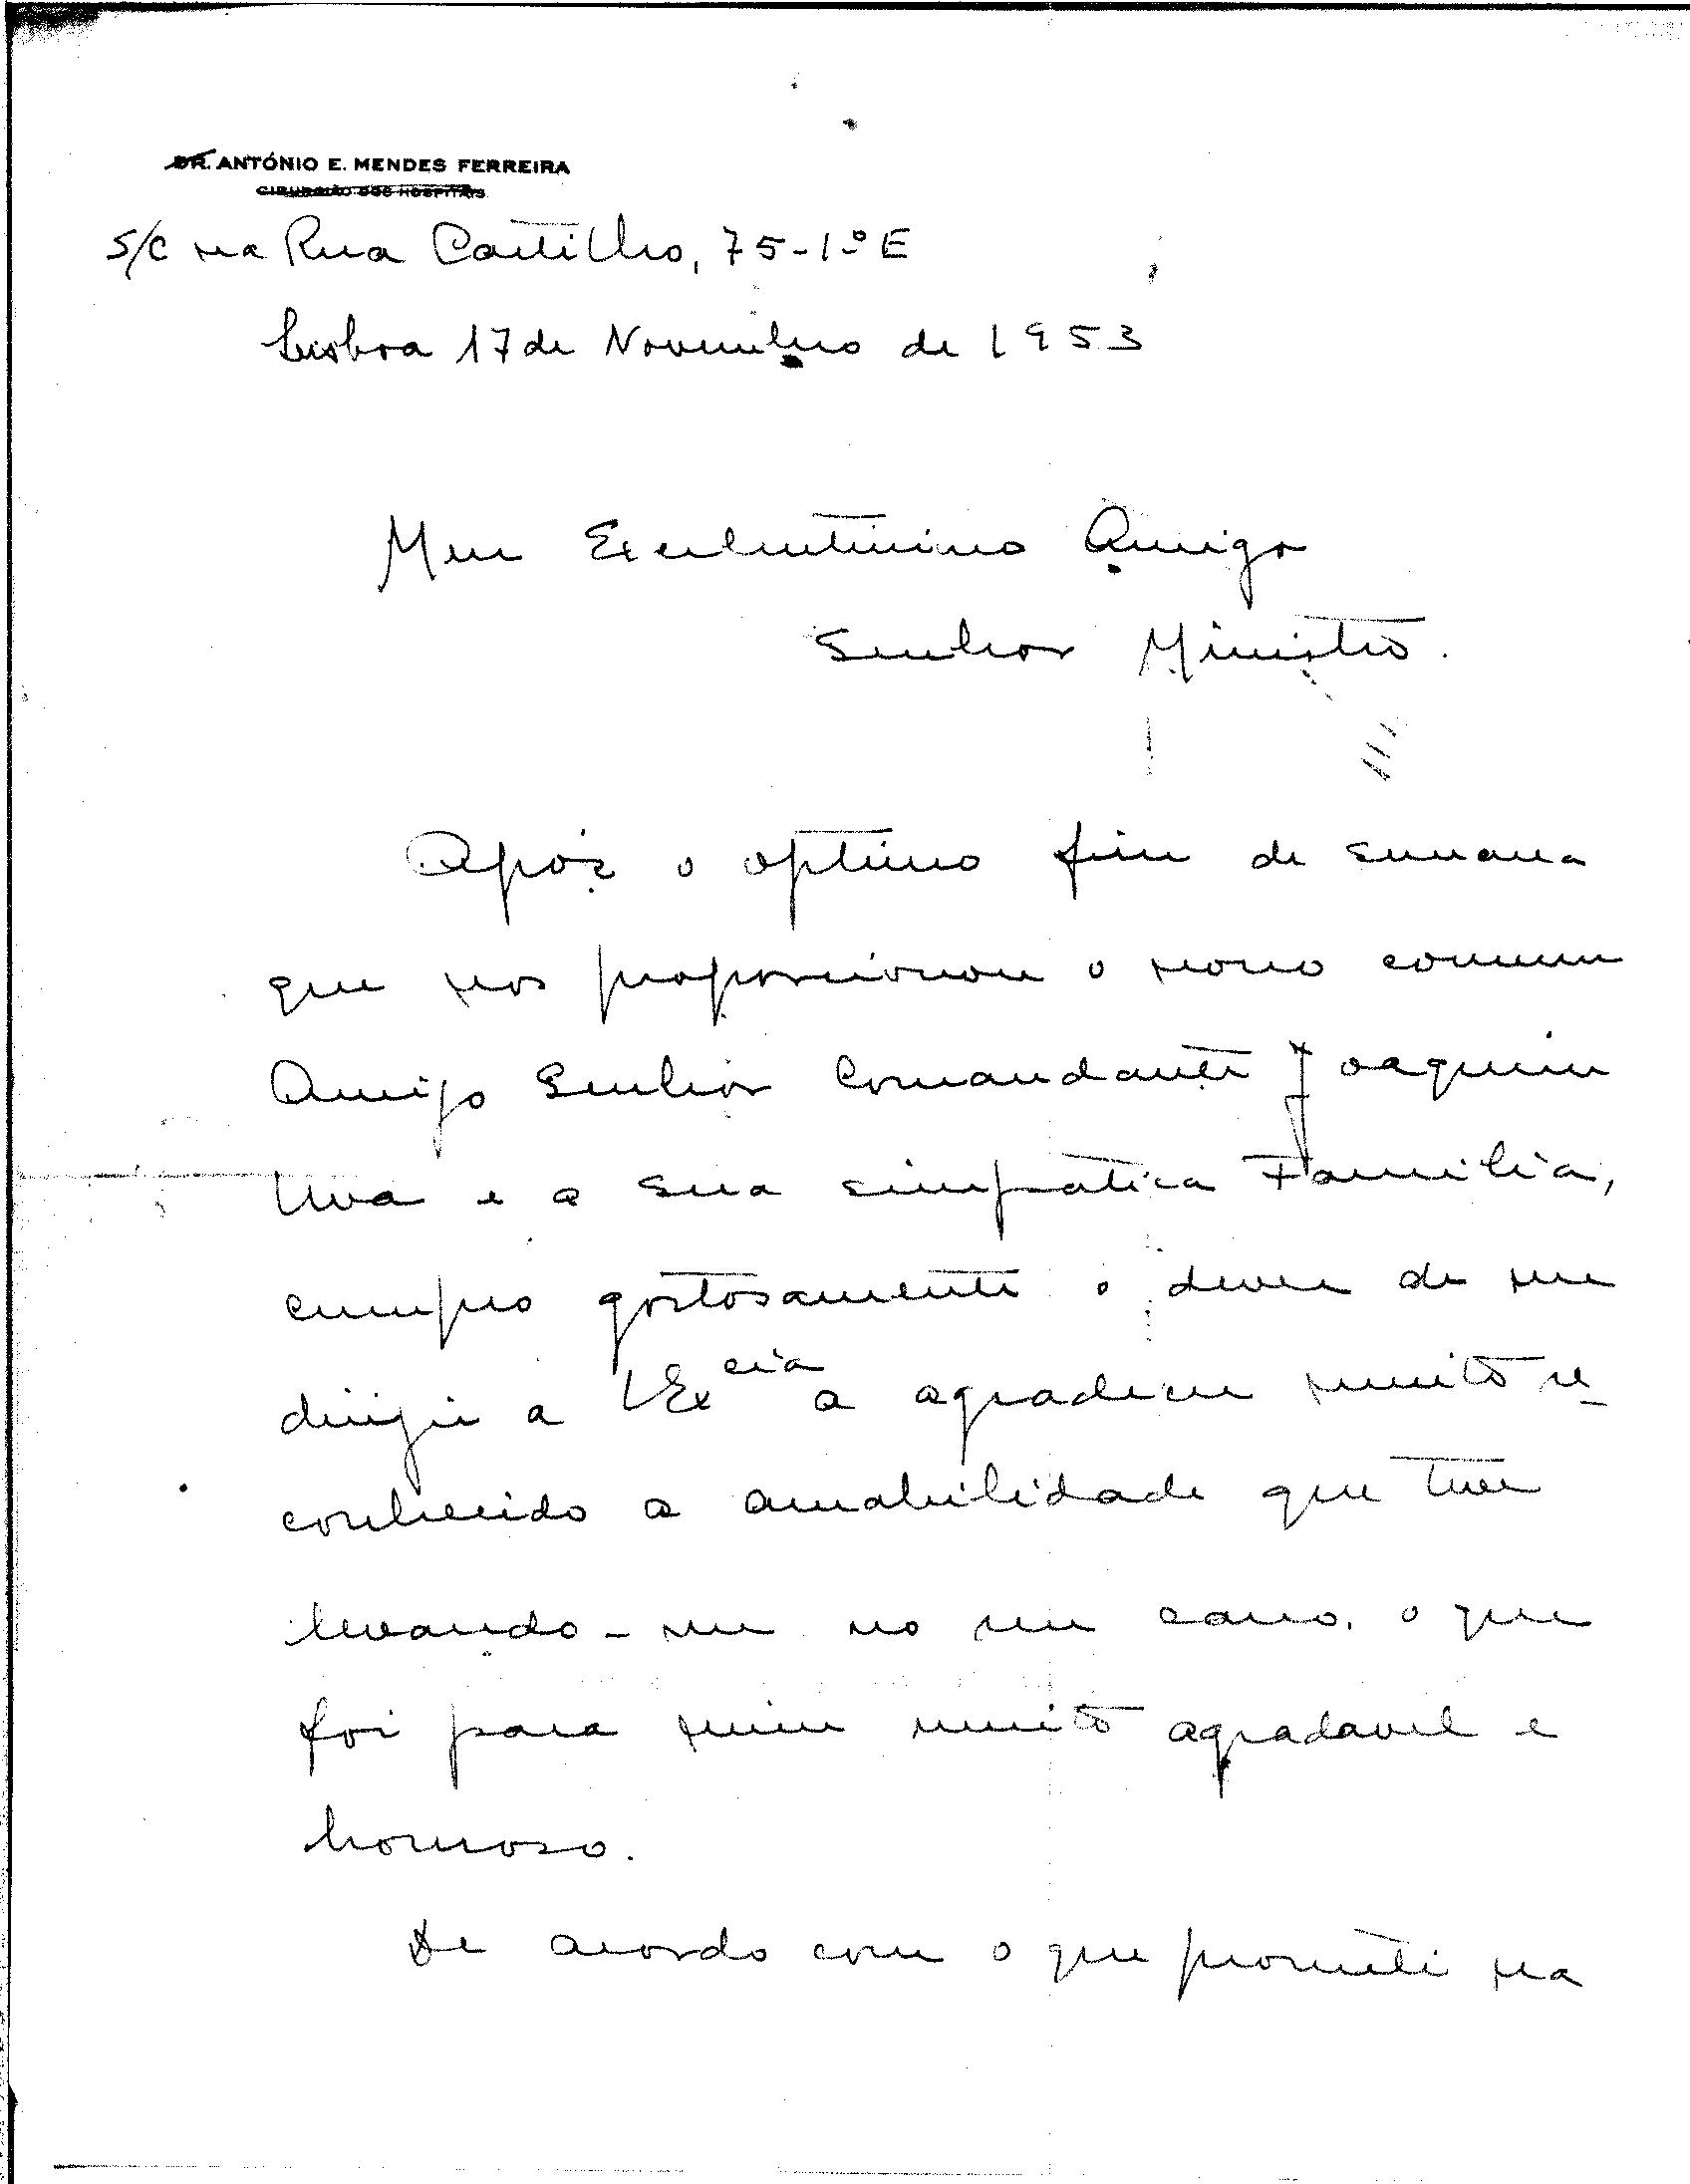 DR. ANTÓNIO E. MENDES FERREIRA
CIRURGIÃO DOS HOSPITAIS
S/C na Rua Castilho, 75-1º E
Lisboa 17 de Novembro de 1953
Meu Excelentissimo Amigo
Senhor Ministro.
Após o optimo fim de semana
que nos proporcionou o nosso comum
Amigo Senhor Comandante Joaquim
Uva e a sua simpatica Familia,
cumpro gostosamente o dever de me
dirigir a VExcia a agradecer muito re-
conhecido a amabilidade que teve
levando-me no seu carro, o que
foi para mim muito agradavel e
honroso.
De acordo com o que prometi na